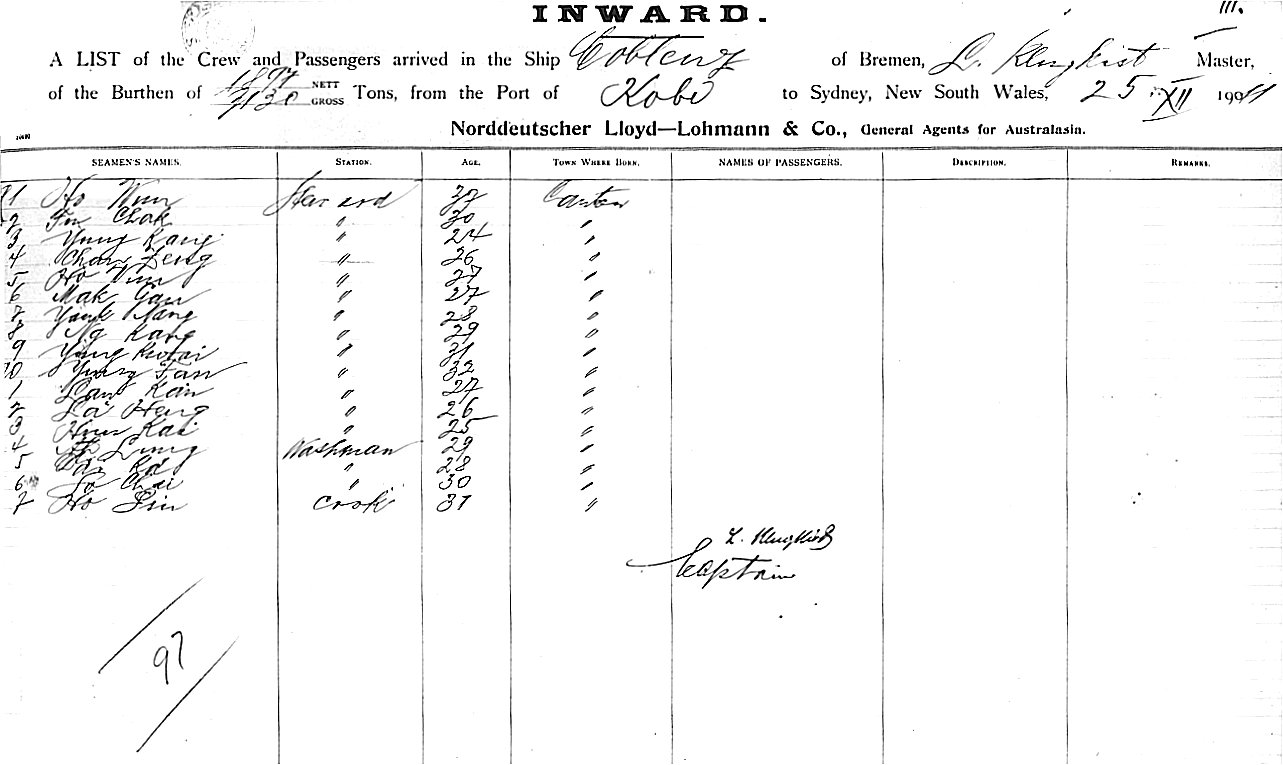 INWARD.
III.
A LIST of the Crew and Passengers arrived in the Ship Coblenz of Bremen, L. Klugkist Master,
of the Burthen of 3130 NETT GROSS Tons, from the Port of Kobe to Sydney, New South Wales, 25. XII 1911
Norddeutscher Lloyd—Lohmann & Co., General Agents for Australasia.
SEAMEN'S NAMES. STATION. AGE. TOWN WHERE BORN. NAMES OF PASSENGERS. DESCRIPTION. REMARKS.
1 Ho Wun 32 Canton
2 Chak " 30 "
3 Yung Kang " 24 "
4 Chan " 26 "
5 Ho " 27 "
6 Mak " 27 "
7 " 28 "
8 Ng Kang " 29 "
9 Yung " 31 "
10 Yung Fan " 32 "
1 Kan " 27 "
2 Heng " 26 "
3 Kai " 25 "
4 Washman 29 "
5 " 28 "
6 Chai " 30 "
7 Ho Cook 31 "
L. Klugkist
Captain
97